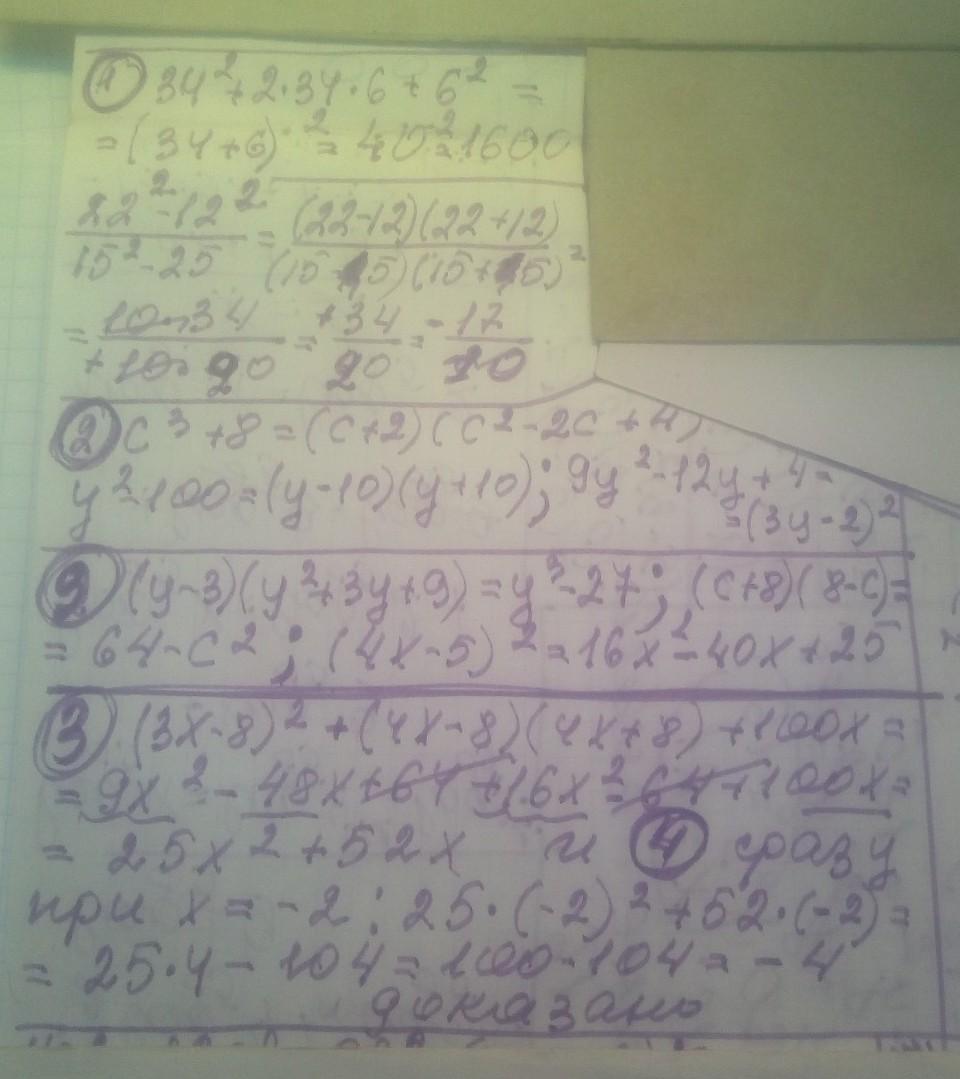 ① 34² + 2·34·6 + 6² =
= (34+6)² = 40² = 1600
22²-12² / 15²-25 = (22-12)(22+12) / (15-5)(15+5) =
= 10·34 / +10·20 = +34 / 20 = 17 / 10
② c³ + 8 = (c+2)(c² - 2c + 4)
y² - 100 = (y-10)(y+10); 9y² - 12y + 4 =
= (3y-2)²
② (y-3)(y²+3y+9) = y³ - 27; (c+8)(8-c) =
= 64 - c²; (4x-5)² = 16x² - 40x + 25
③ (3x-8)² + (4x-8)(4x+8) + 100x =
= 9x² - 48x + 64 + 16x² - 64 + 100x =
= 25x² + 52x и ④ сразу
при x = -2: 25·(-2)² + 52·(-2) =
= 25·4 - 104 = 100 - 104 = -4
доказано